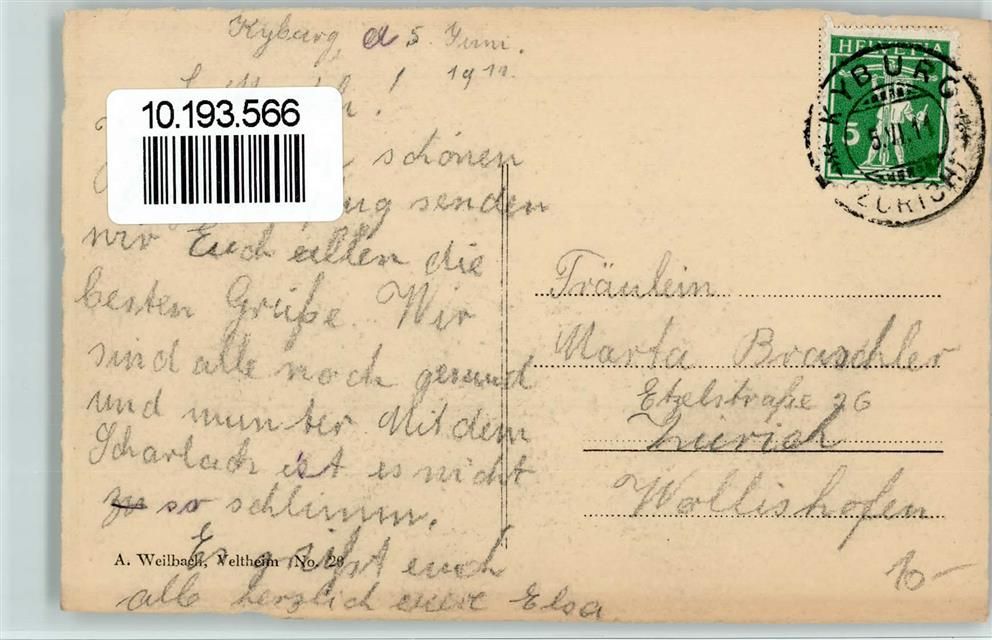 Kyburg, d 5. Juni.
1911.
10.193.566
schönen
senden
wir Euch allen die
besten Grüße. Wir
sind alle noch gesund
und munter Mit dem
Scharlach ist es nicht
zu so schlimm.
Es grüßt euch
alle herzlich eure Elsa
A. Weilbach, Veltheim No. 26
HELVETIA
5
KYBURG
(ZÜRICH)
Fräulein
Marta Braschler
Etzelstraße 26
Zürich
Wollishofen
10-